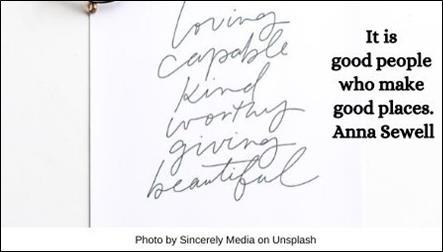 loving
capable
kind
worthy
giving
beautiful
It is
good people
who make
good places.
Anna Sewell
Photo by Sincerely Media on Unsplash